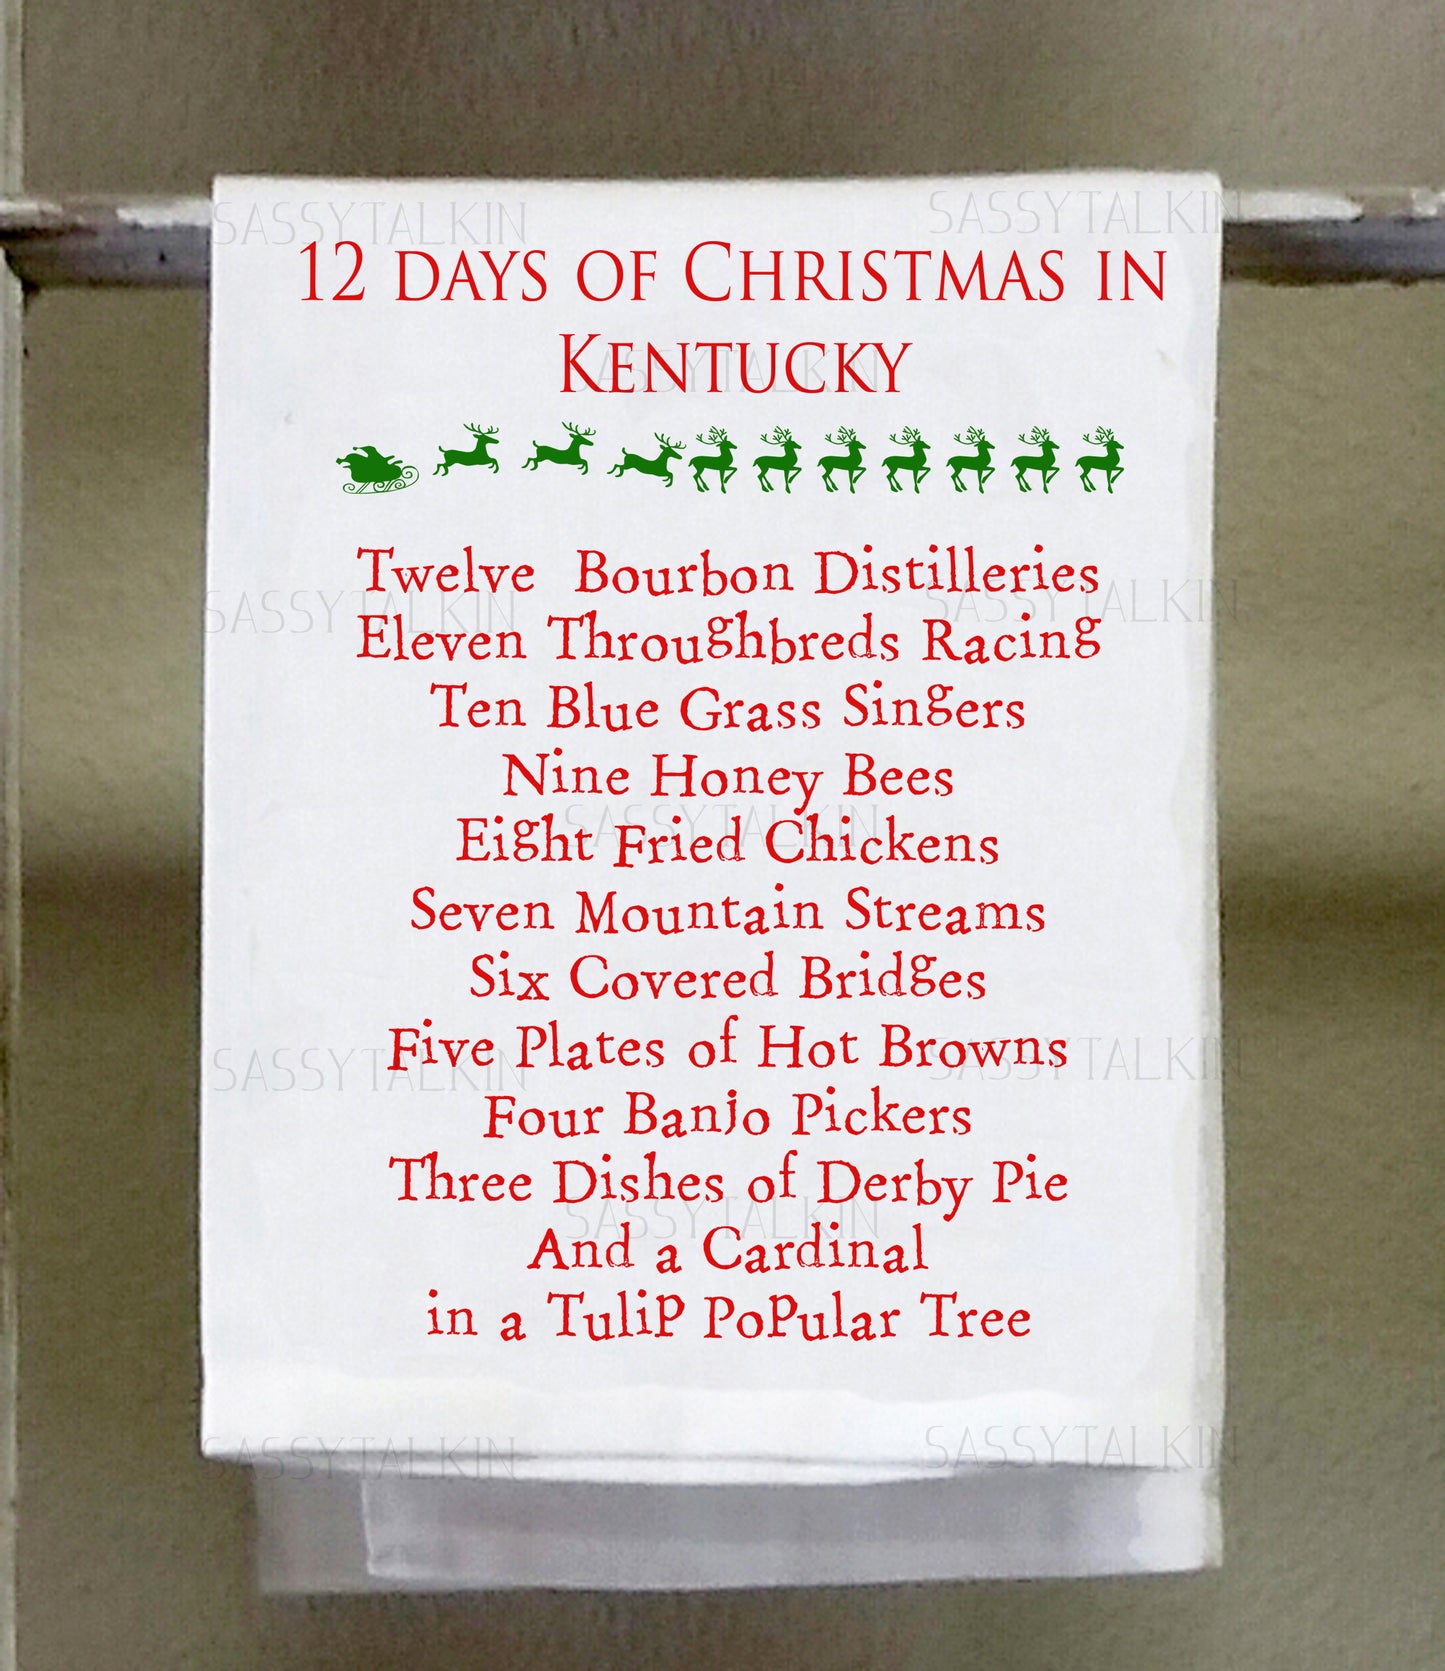 SASSYTALKIN SASSYTALKIN
12 DAYS OF CHRISTMAS IN
KENTUCKY
SASSYTALKIN
Twelve Bourbon Distilleries
SASSYTALKIN SASSYTALKIN
Eleven Throughbreds Racing
Ten Blue Grass Singers
Nine Honey Bees
SASSYTALKIN
Eight Fried Chickens
Seven Mountain Streams
Six Covered Bridges
Five Plates of Hot Browns
SASSYTALKIN SASSYTALKIN
Four Banjo Pickers
Three Dishes of Derby Pie
SASSYTALKIN
And a Cardinal
in a Tulip Popular Tree
SASSYTALKIN SASSYTALKIN